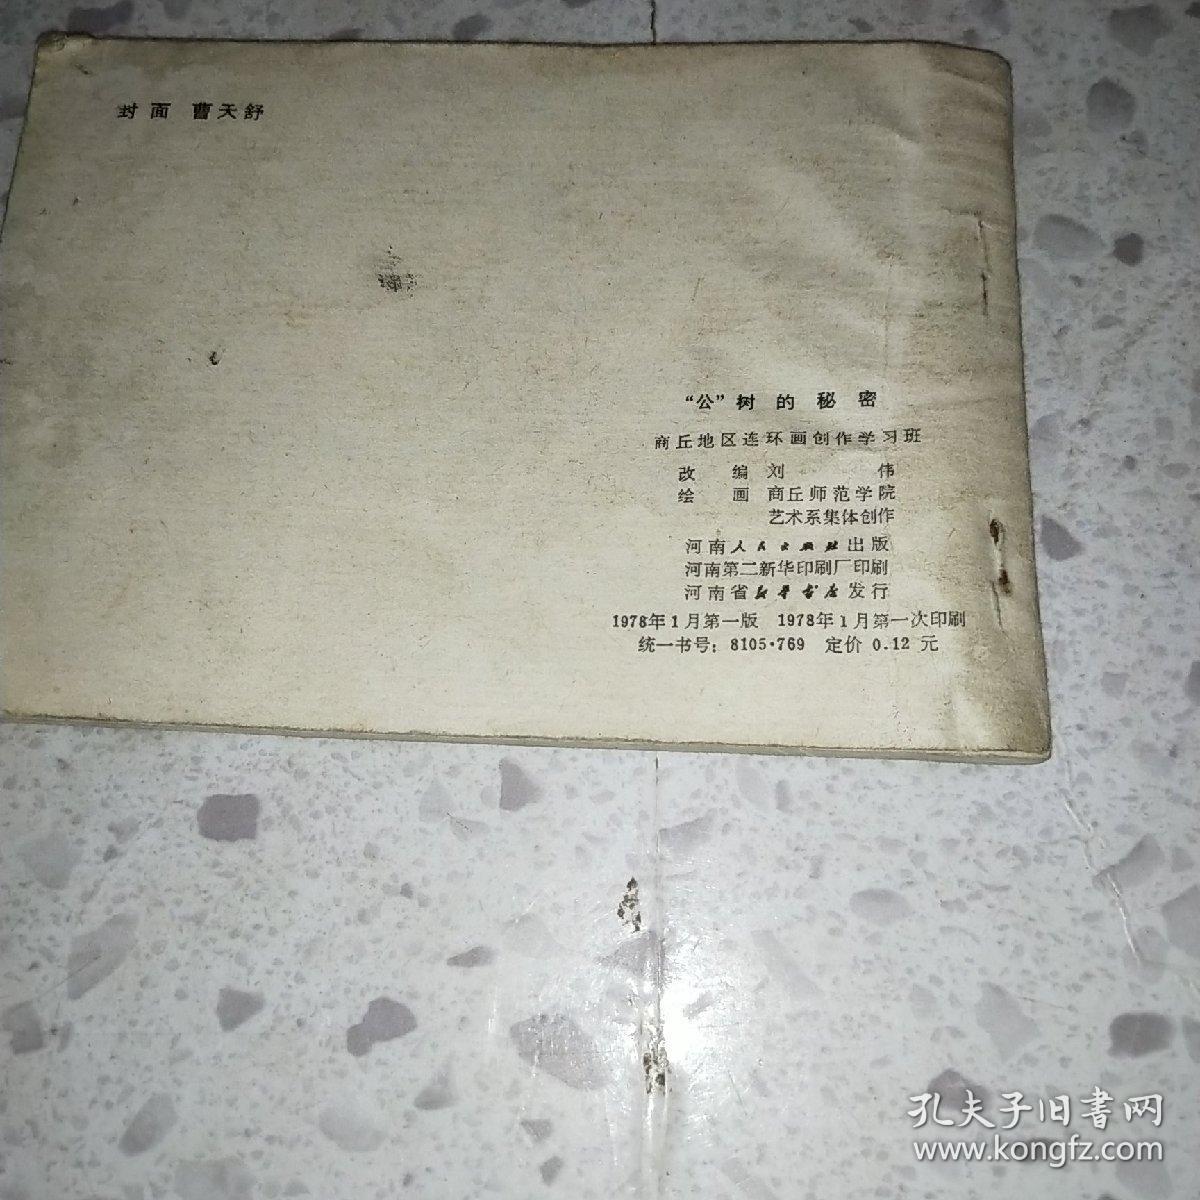 封面 曹天舒
“公”树的秘密
商丘地区连环画创作学习班
改编 刘伟
绘画 商丘师范学院
艺术系集体创作
河南人民出版社出版
河南第二新华印刷厂印刷
河南省新华书店发行
1978年1月第一版 1978年1月第一次印刷
统一书号：8105·769 定价 0.12 元
孔夫子旧書网
www.kongfz.com